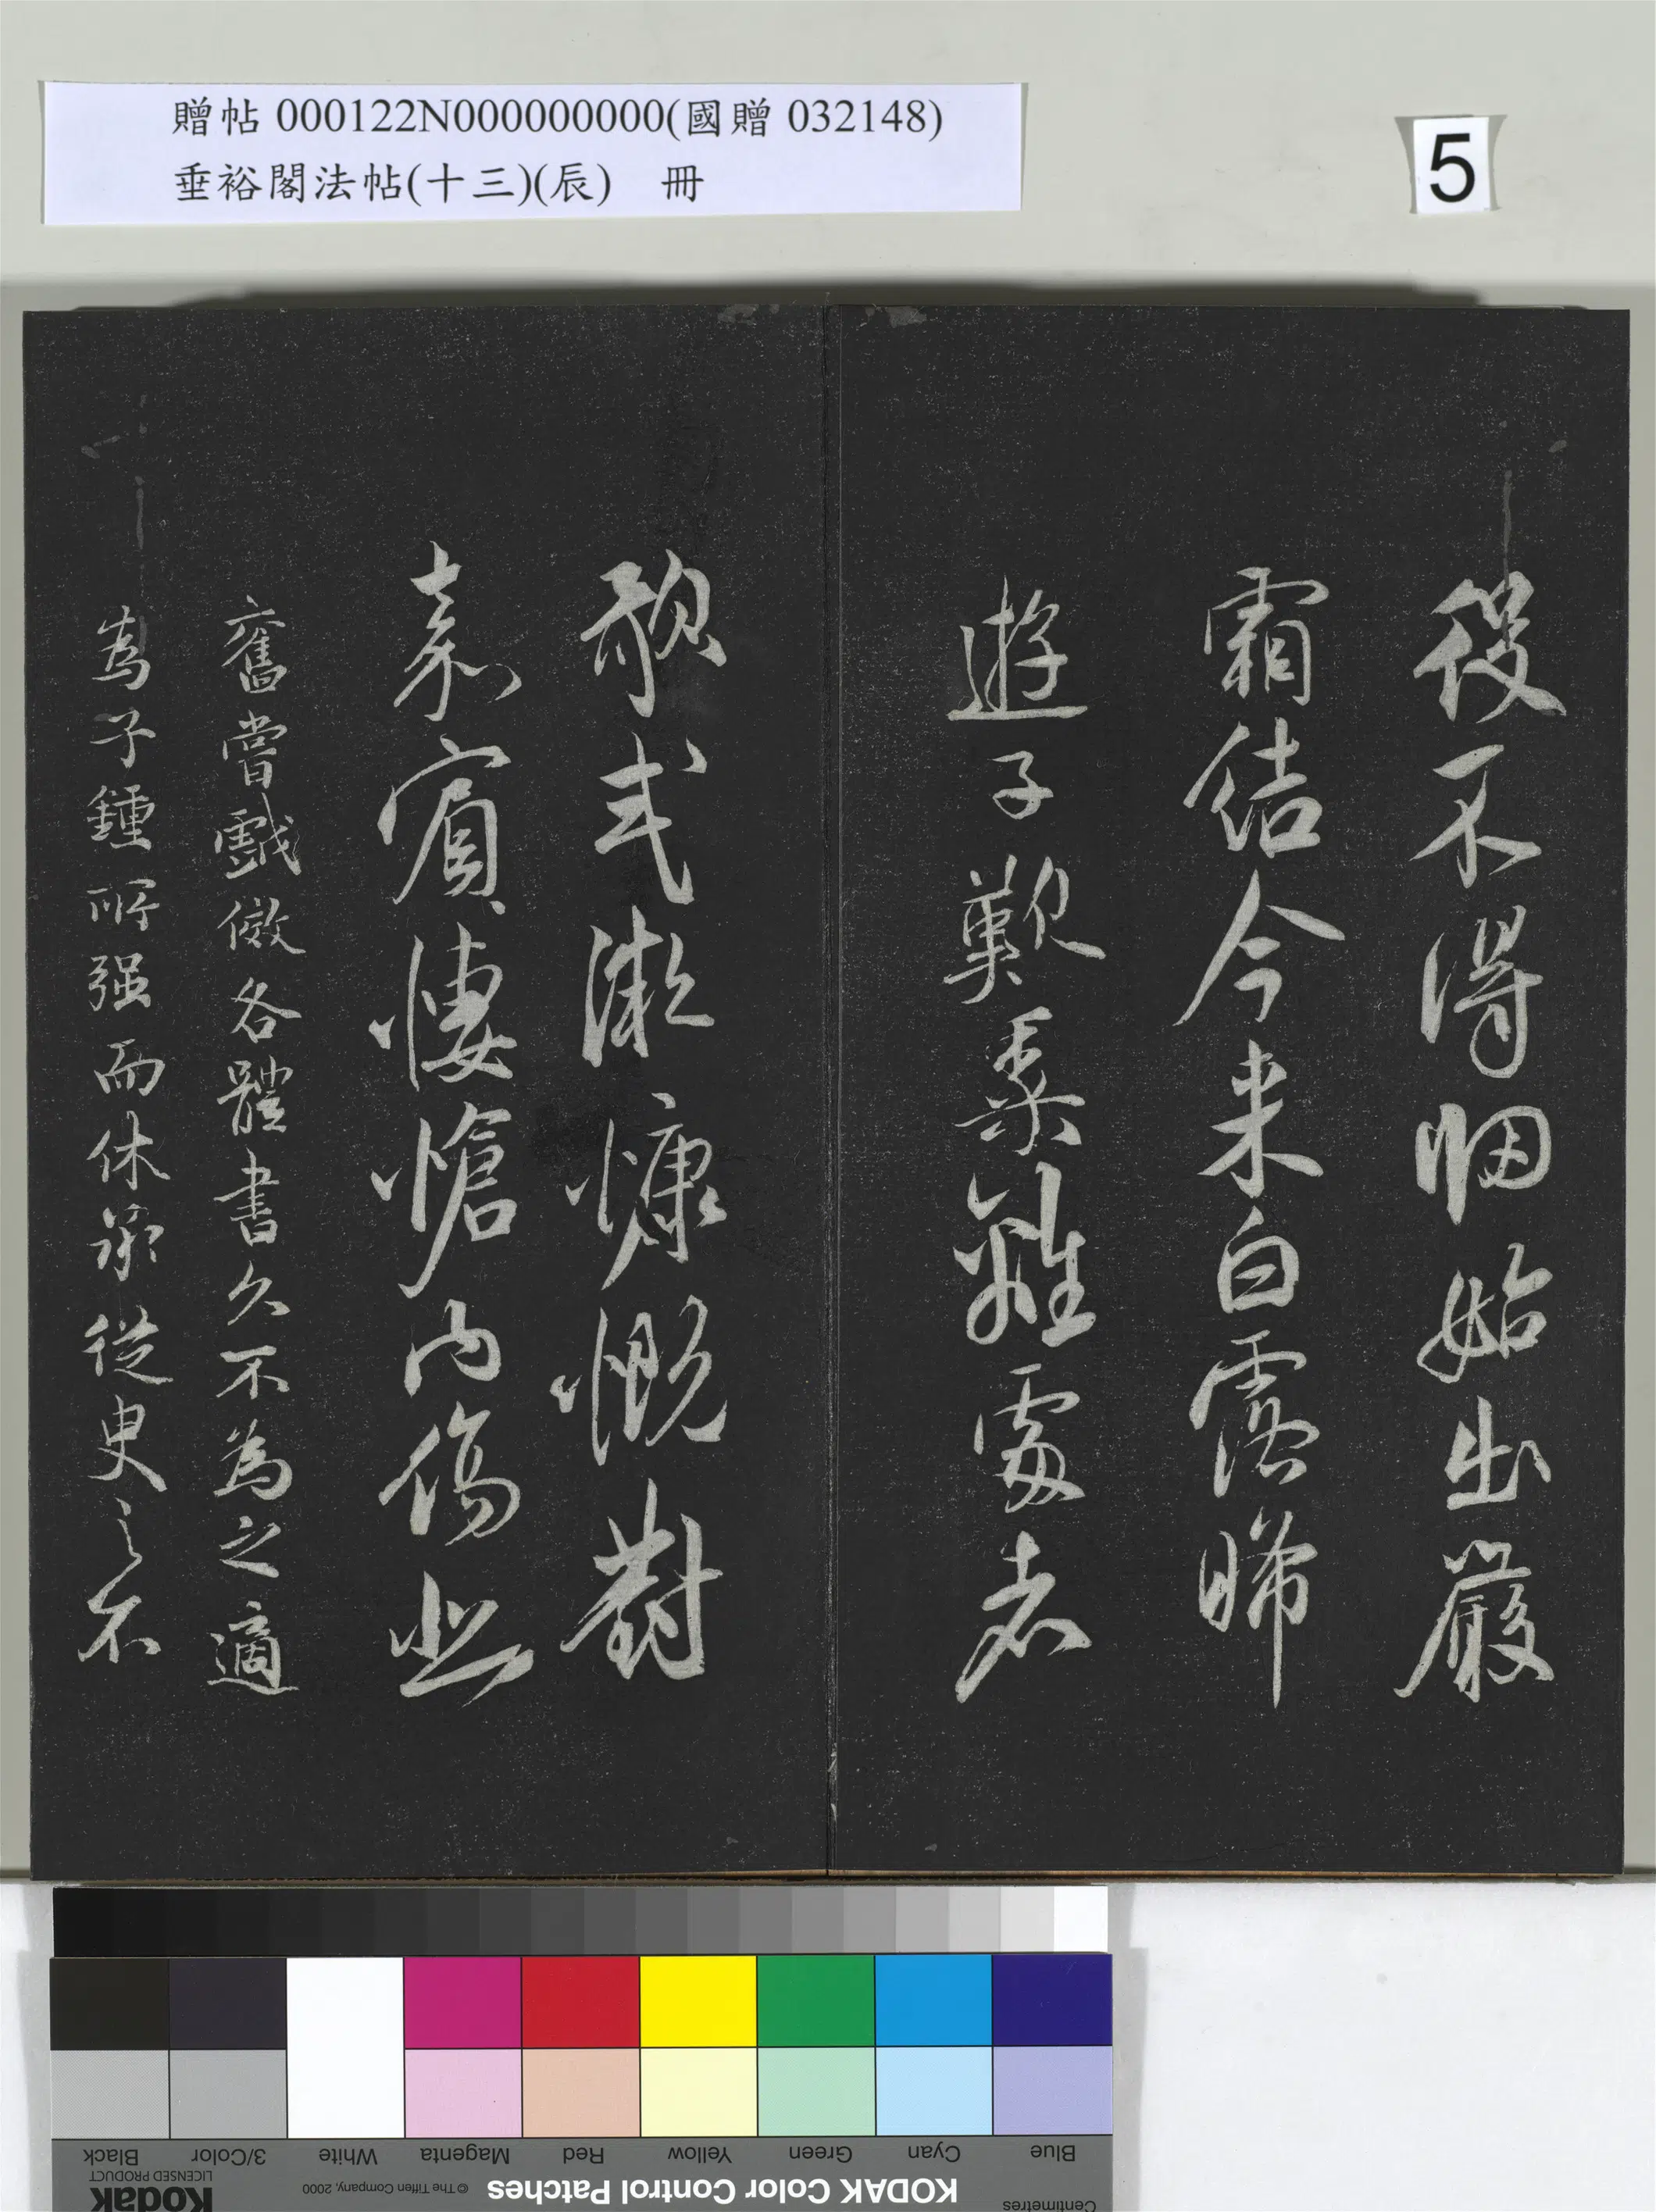 贈帖 000122N000000000(國贈 032148)
垂裕閣法帖(十三)(辰) 冊
5
役不得归始出嚴
霜結今来白露晞
遊子歎黍離處者
歌式微慷慨對
嘉賓悽愴內傷悲
舊嘗戲倣各體書久不為之適
為子鍾所强而休承從臾之不
Black
3/Color
White
Magenta
Red
Yellow
Green
Cyan
Blue
Kodak
LICENSED PRODUCT
© The Tiffen Company, 2000
KODAK Color Control Patches
Centimetres